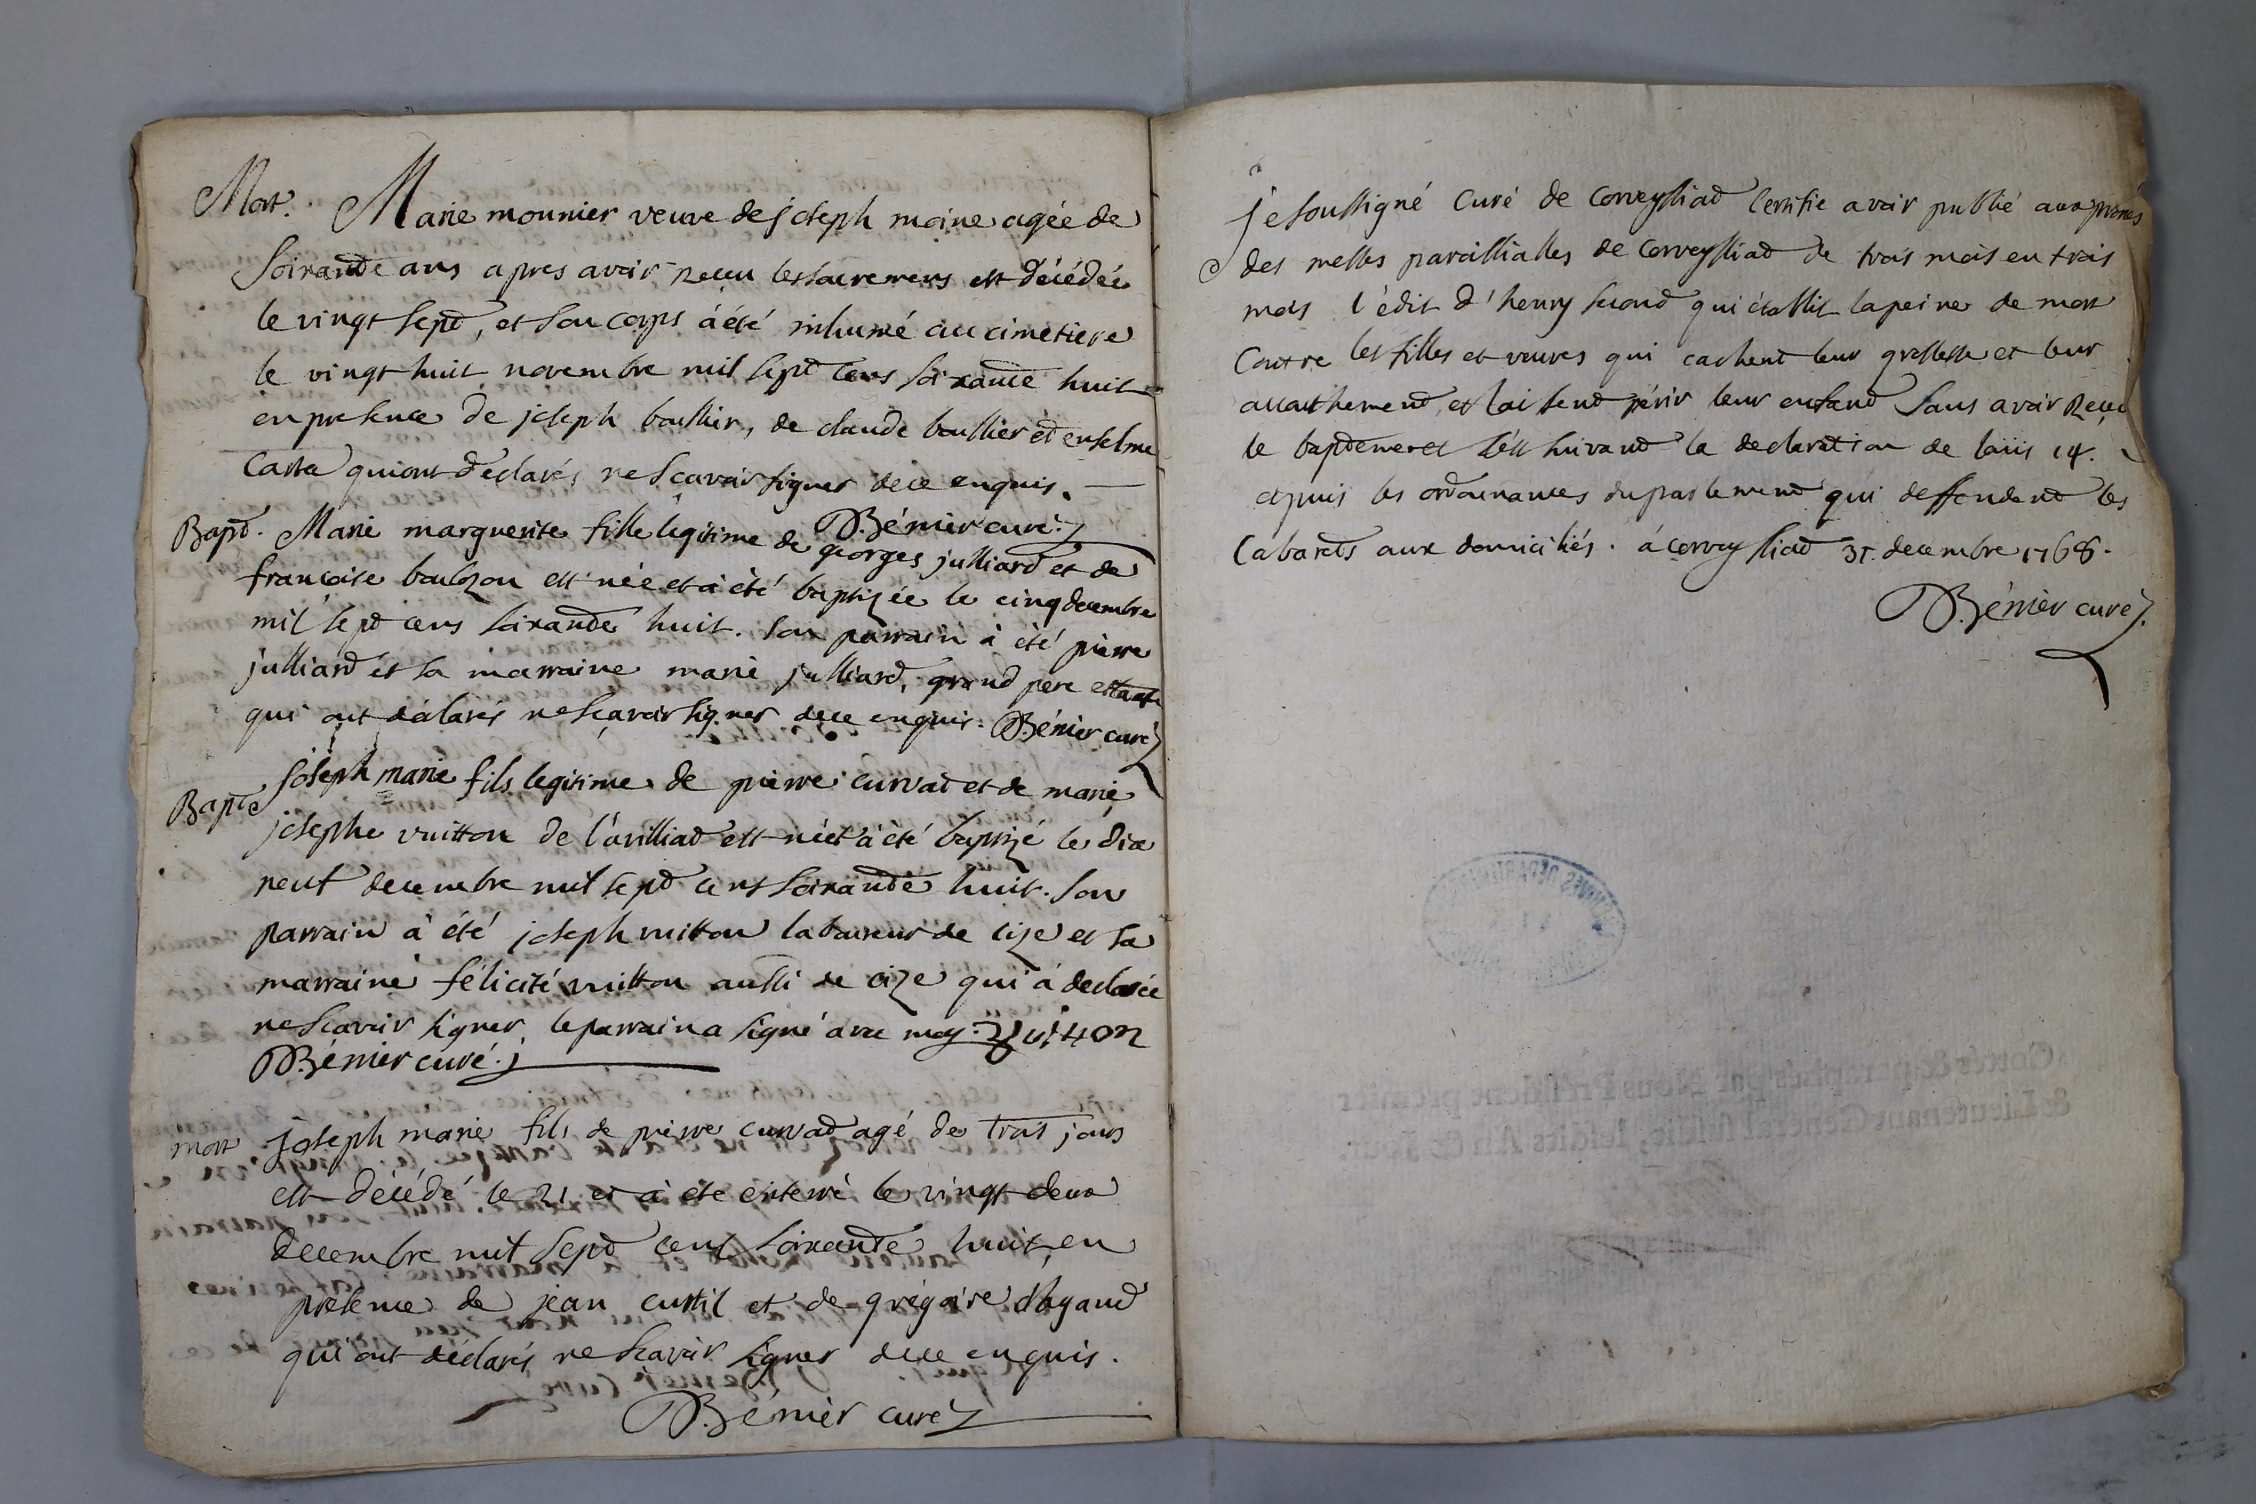 Mort. Marie mounier veuve de joseph moine agée de
soixante ans apres avoir reçu les sacremens est décédée
le vingt sept, et son corps à été inhumé au cimetiere
le vingt huit novembre mil sept cens soixante huit
en presence de joseph boullier, de claude boullier et enselme
Carra qui ont déclarés ne sçavoir signer de ce enquis.
B. Bénier curé
Bapt. Marie marguerite fille legitime de georges julliard et de
françoise boulozon est née et à été baptizée le cinq decembre
mil sept cens soixante huit. son parrain à été pierre
julliard et sa marraine marie julliard, grand pere et tante
qui ont déclarés ne sçavoir signer de ce enquis. B. Bénier curé
Bapte joseph marie fils legitime de pierre curvat et de marie
josephe vuitton de l'avilliat est né et à été baptizé le dix
neuf decembre mil sept cent soixante huit. son
parrain à été joseph vuitton laboureur de cize et sa
marraine félicité vuitton aussi de cize qui à declarée
ne sçavoir signer, le parrain a signé avec moy. Vuitton
B. Bénier curé.
mort joseph marie fils de pierre curvat agé de trois jours
est décédé le 21 et à été enterré le vingt deux
decembre mil sept cent soixante huit, en
presence de jean curtil et de grégoire dagand
qui ont déclarés ne sçavoir signer de ce enquis.
B. Bénier curé
je soussigné Curé de Corveyssiat Certifie avoir publié aux prones
des messes paroissialles de Corveyssiat de trois mois en trois
mois l'édit d'henry second qui établit la peine de mort
Contre les filles et veuves qui cachent leur grossesse et leur
accouchement, et laissent périr leur enfant sans avoir Reçu
le baptême et suivant la declaration de loüis 14.
et puis les ordonnances du parlement qui deffendent les
Cabarets aux domiciliés. à corveyssiat 31. decembre 1768.
B. Bénier curé.